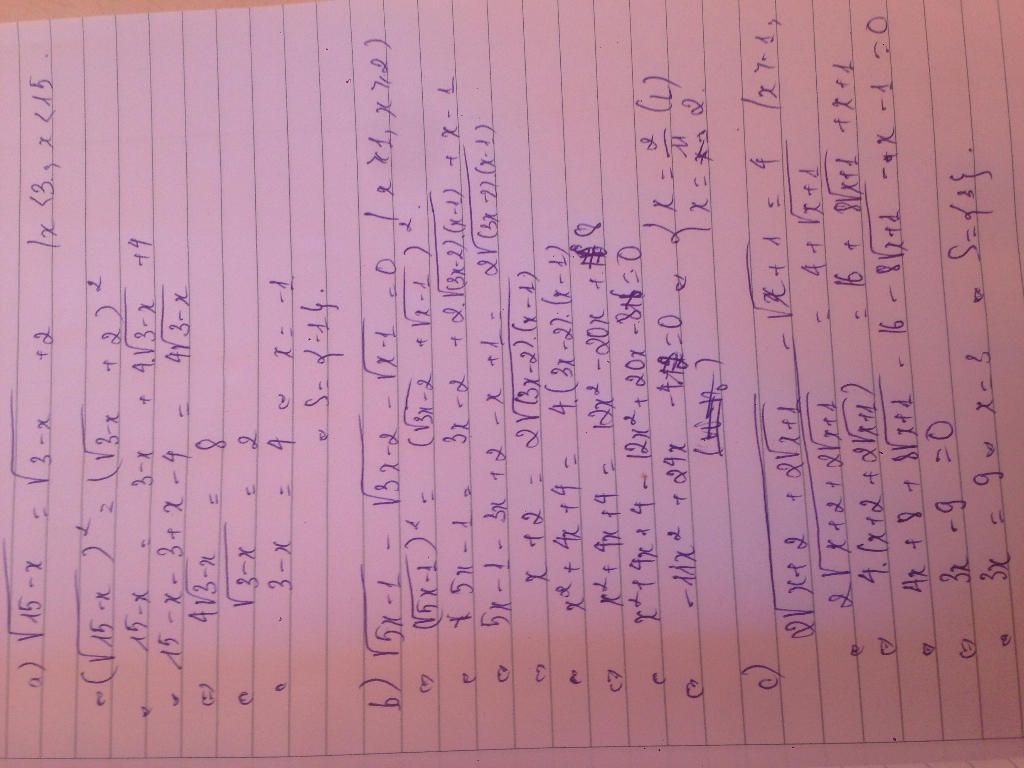 a) √15-x = √3-x +2 (x<3, x<15.
⇔ (√15-x)² = (√3-x +2)²
⇔ 15-x = 3-x + 4√3-x +4
⇔ 15-x-3+x-4 = 4√3-x
⇔ 4√3-x = 8
⇔ √3-x = 2
⇔ 3-x = 4 ⇔ x = -1
⇔ S={-1}.
b) √5x-1 - √3x-2 - √x-1 = 0
⇔ (√5x-1)² = (√3x-2 + √x-1)²
⇔ 5x-1 = 3x-2 + 2.√(3x-2)(x-1) + x-1
⇔ 5x-1-3x+2-x+1 = 2√(3x-2)(x-1)
⇔ x+2 = 2√(3x-2).(x-1)
⇔ x²+4x+4 = 4(3x-2).(x-1)
⇔ x²+4x+4 = 12x²-20x+8
⇔ x²+4x+4-12x²+20x-8=0
⇔ -11x²+24x-4=0 ⇔ { x = 2/11 (L)
x = 2
c) 2√x+2+2√x+1 - √x+1 = 4
2√x+2+2√x+1 = 4+√x+1
⇔ 4.(x+2+2√x+1) = 16+8√x+1+x+1
⇔ 4x+8+8√x+1-16-8√x+1-x-1=0
⇔ 3x-9=0
⇔ 3x = 9 ⇔ x=3 ⇔ S={3}.